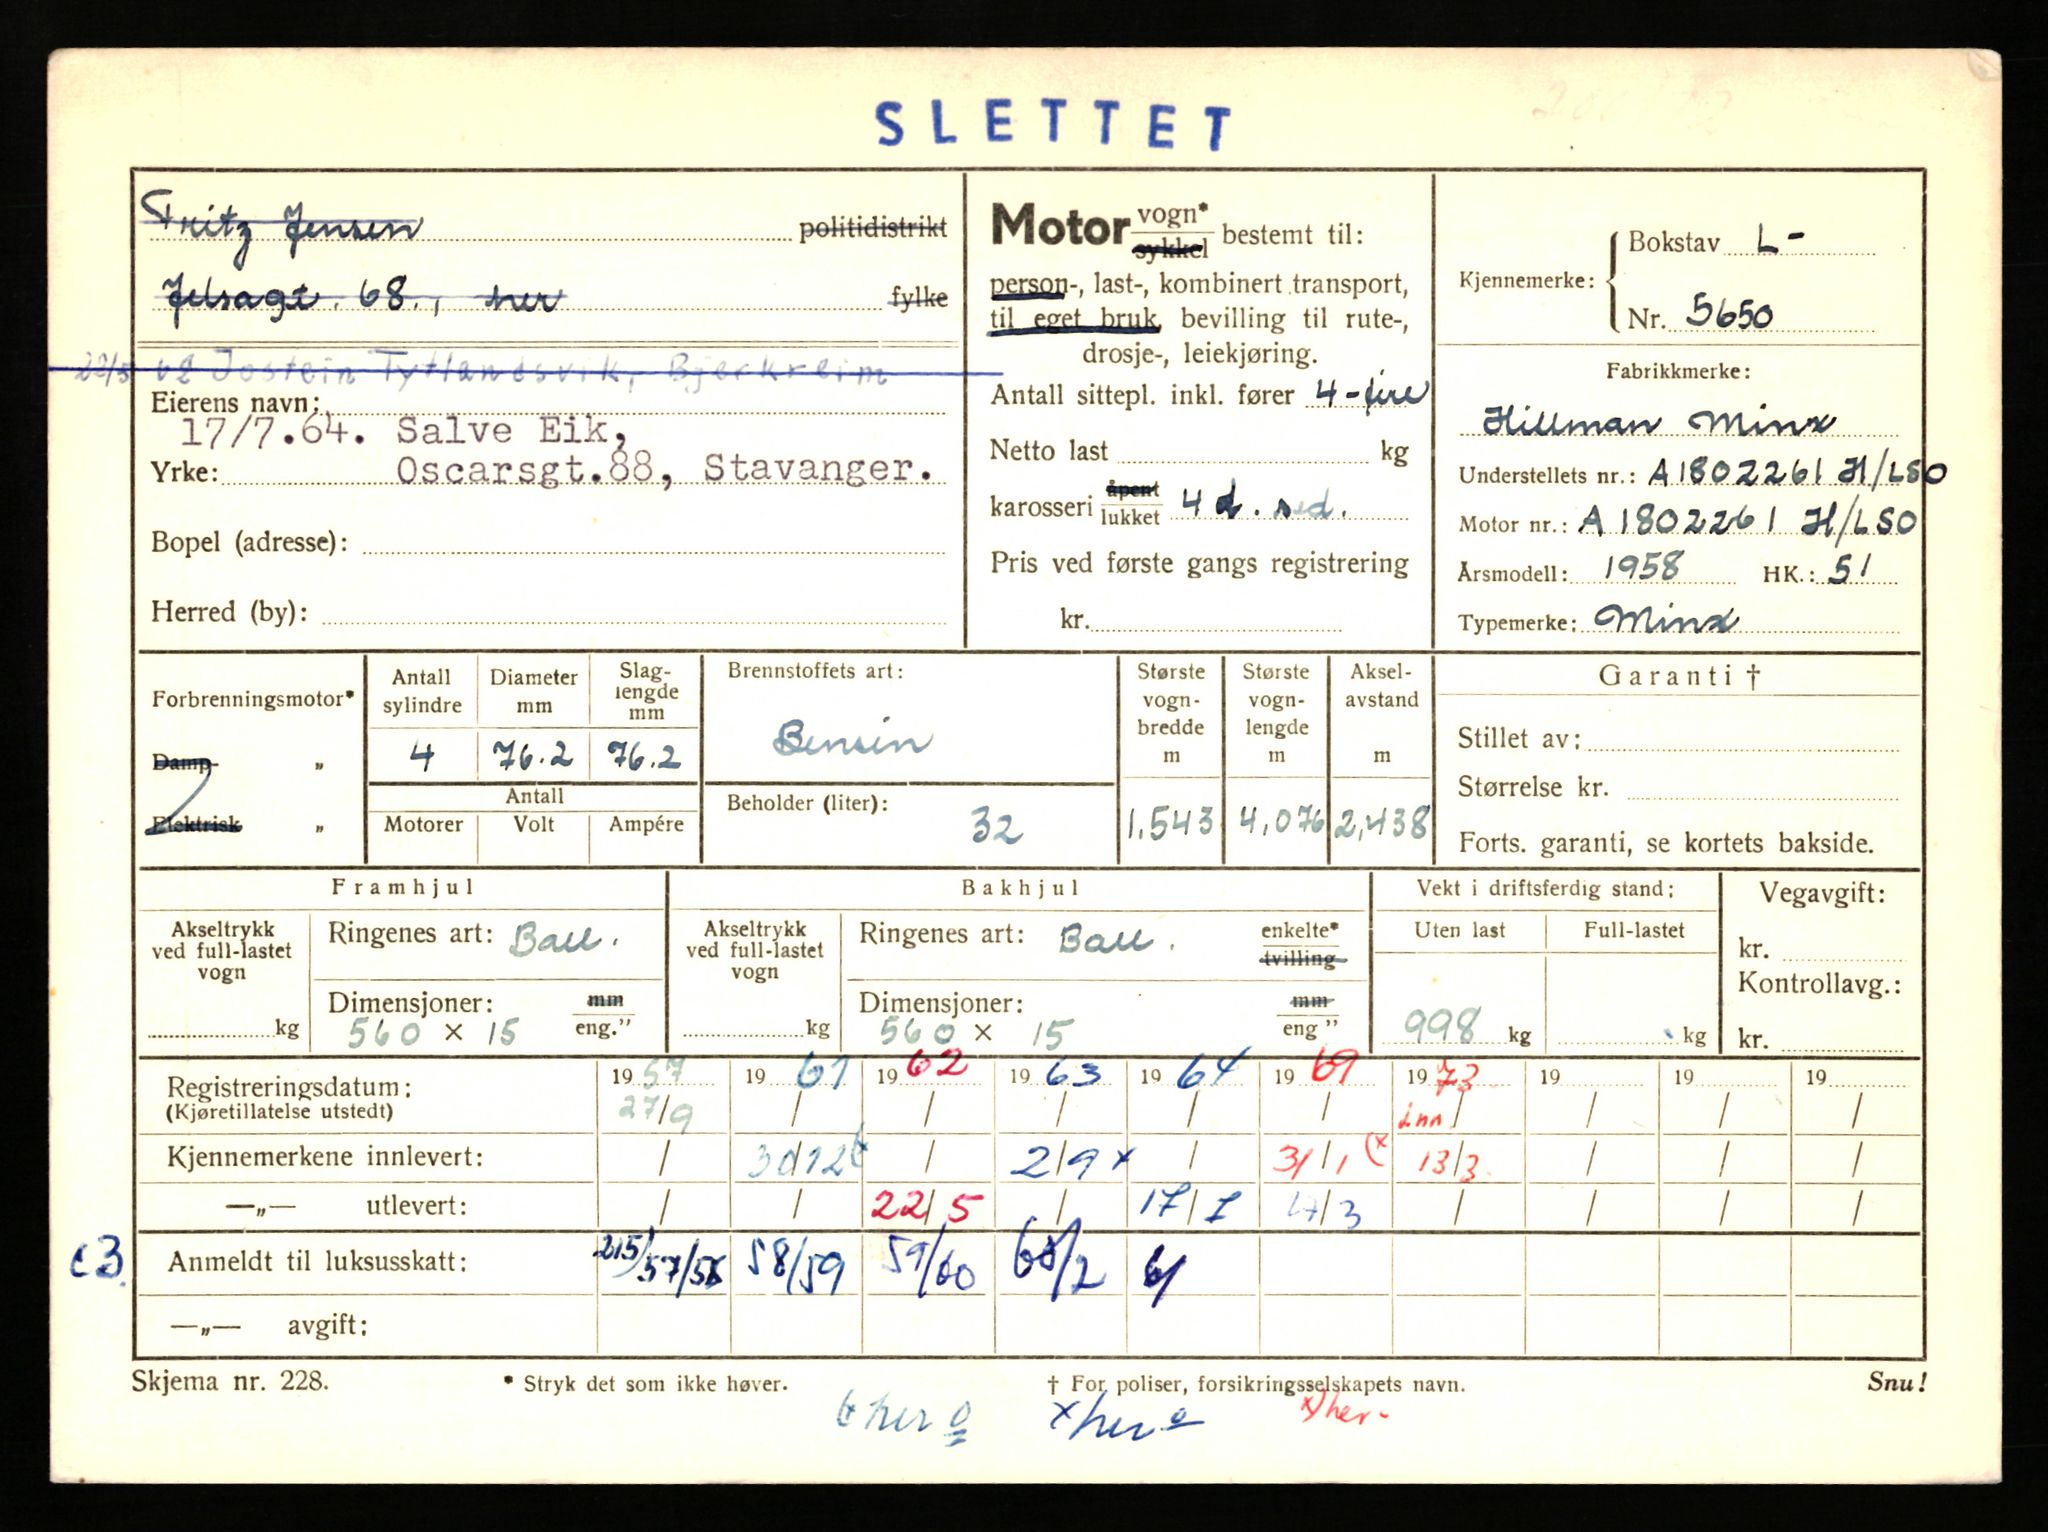 SLETTET
Fritz Jensen politidistrikt
Jelsagt. 68., her fylke
22/5 62 Jostein Tytlandsvik, Bjerkreim
Eierens navn:
17/7.64. Salve Eik,
Yrke: Oscarsgt.88, Stavanger.
Bopel (adresse):
Herred (by):
Motor vogn* sykkel bestemt til:
person-, last-, kombinert transport,
til eget bruk, bevilling til rute-,
drosje-, leiekjøring.
Antall sittepl. inkl. fører 4-fire
Netto last kg
karosseri åpent lukket 4 d. sed.
Pris ved første gangs registrering
kr.
Kjennemerke: Bokstav L-
Nr. 5650
Fabrikkmerke:
Hillman Minx
Understellets nr.: A1802261 H/LSO
Motor nr.: A1802261 H/LSO
Årsmodell: 1958 HK.: 51
Typemerke: Minx
Forbrenningsmotor*
Damp- „
Elektrisk „
Antall sylindre
Diameter mm
Slag-lengde mm
4 76.2 76.2
Antall
Motorer Volt Ampére
Brennstoffets art:
Bensin
Beholder (liter):
32
Største vogn-bredde m
1.543
Største vogn-lengde m
4,076
Aksel-avstand m
2,438
Garanti †
Stillet av:
Størrelse kr.
Forts. garanti, se kortets bakside.
Framhjul
Akseltrykk ved full-lastet vogn
kg
Ringenes art: Ball.
Dimensjoner: mm
560 × 15 eng.”
Bakhjul
Akseltrykk ved full-lastet vogn
kg
Ringenes art: Ball. enkelte* tvilling
Dimensjoner: mm
560 × 15 eng ”
Vekt i driftsferdig stand:
Uten last Full-lastet
998 kg kg
Vegavgift:
kr.
Kontrollavg.:
kr.
Registreringsdatum: 19 57 19 61 19 62 19 63 19 64 19 69 19 73 19 19 19
(Kjøretillatelse utstedt) 27/9 / / / / / inn / / / /
Kjennemerkene innlevert: / 30/12 / 2/9 x / 31/1 (x 13/3 / / /
—„— utlevert: / / 22/5 / 17/7 17/3 / / / /
c3. Anmeldt til luksusskatt: 215/57/58 58/59 59/60 60/2
—„— avgift:
Skjema nr. 228.
* Stryk det som ikke høver.
† For poliser, forsikringsselskapets navn.
Snu!
her
x her
x) her-